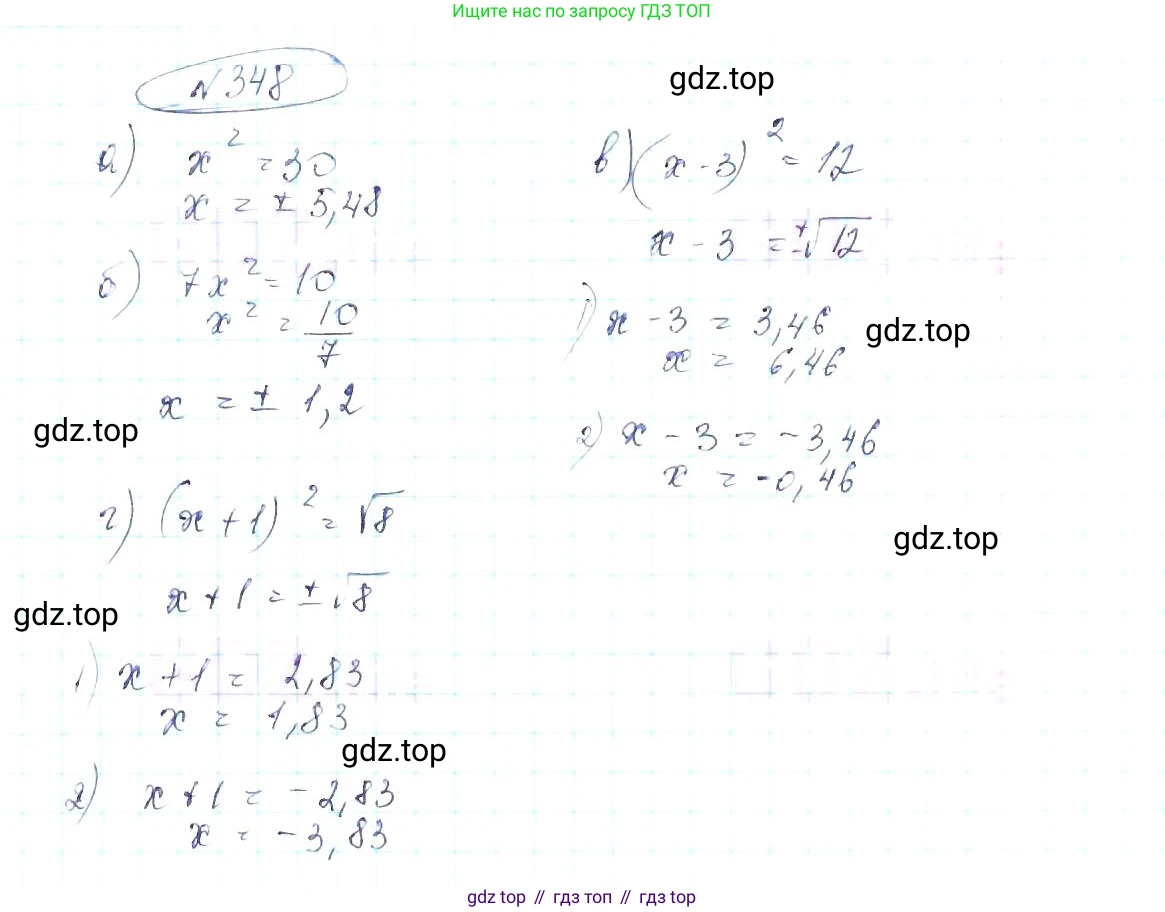 Ищите нас по запросу ГДЗ ТОП
№ 348
gdz.top
а) x² = 30
x = ± 5,48
б) 7x² = 10
x² = 10/7
x = ± 1,2
gdz.top
в) (x - 3)² = 12
x - 3 = ±√12
1) x - 3 = 3,46
gdz.top
x = 6,46
2) x - 3 = -3,46
x = -0,46
gdz.top
г) (x + 1)² = √8
x + 1 = ±√8
gdz.top
1) x + 1 = 2,83
x = 1,83
gdz.top
2) x + 1 = -2,83
x = -3,83
gdz top // гдз топ // gdz top